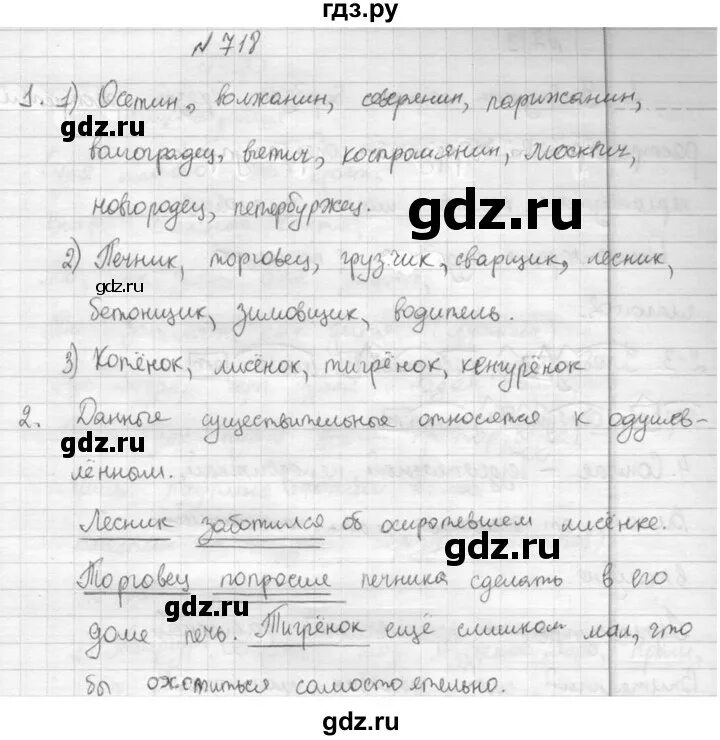 гдз.ру
№ 718
1. 1) Осетин, волжанин, северянин, парижанин,
волгоградец, вятич, костромянин, москвич,
новгородец, петербуржец.
2) Печник, торговец, грузчик, сварщик, лесник,
бетонщик, зимовщик, водитель.
3) Котёнок, лисёнок, тигрёнок, кенгурёнок
2. Данные существительные относятся к одушев-
лённым.
Лесник заботился об осиротевшем лисёнке.
Торговец попросил печника сделать в его
доме печь. Тигрёнок ещё слишком мал, что
бы охотиться самостоятельно.
gdz.ru
gdz.ru
gdz.ru
gdz.ru
gdz.ru
gdz.ru
gdz.ru
gdz.ru